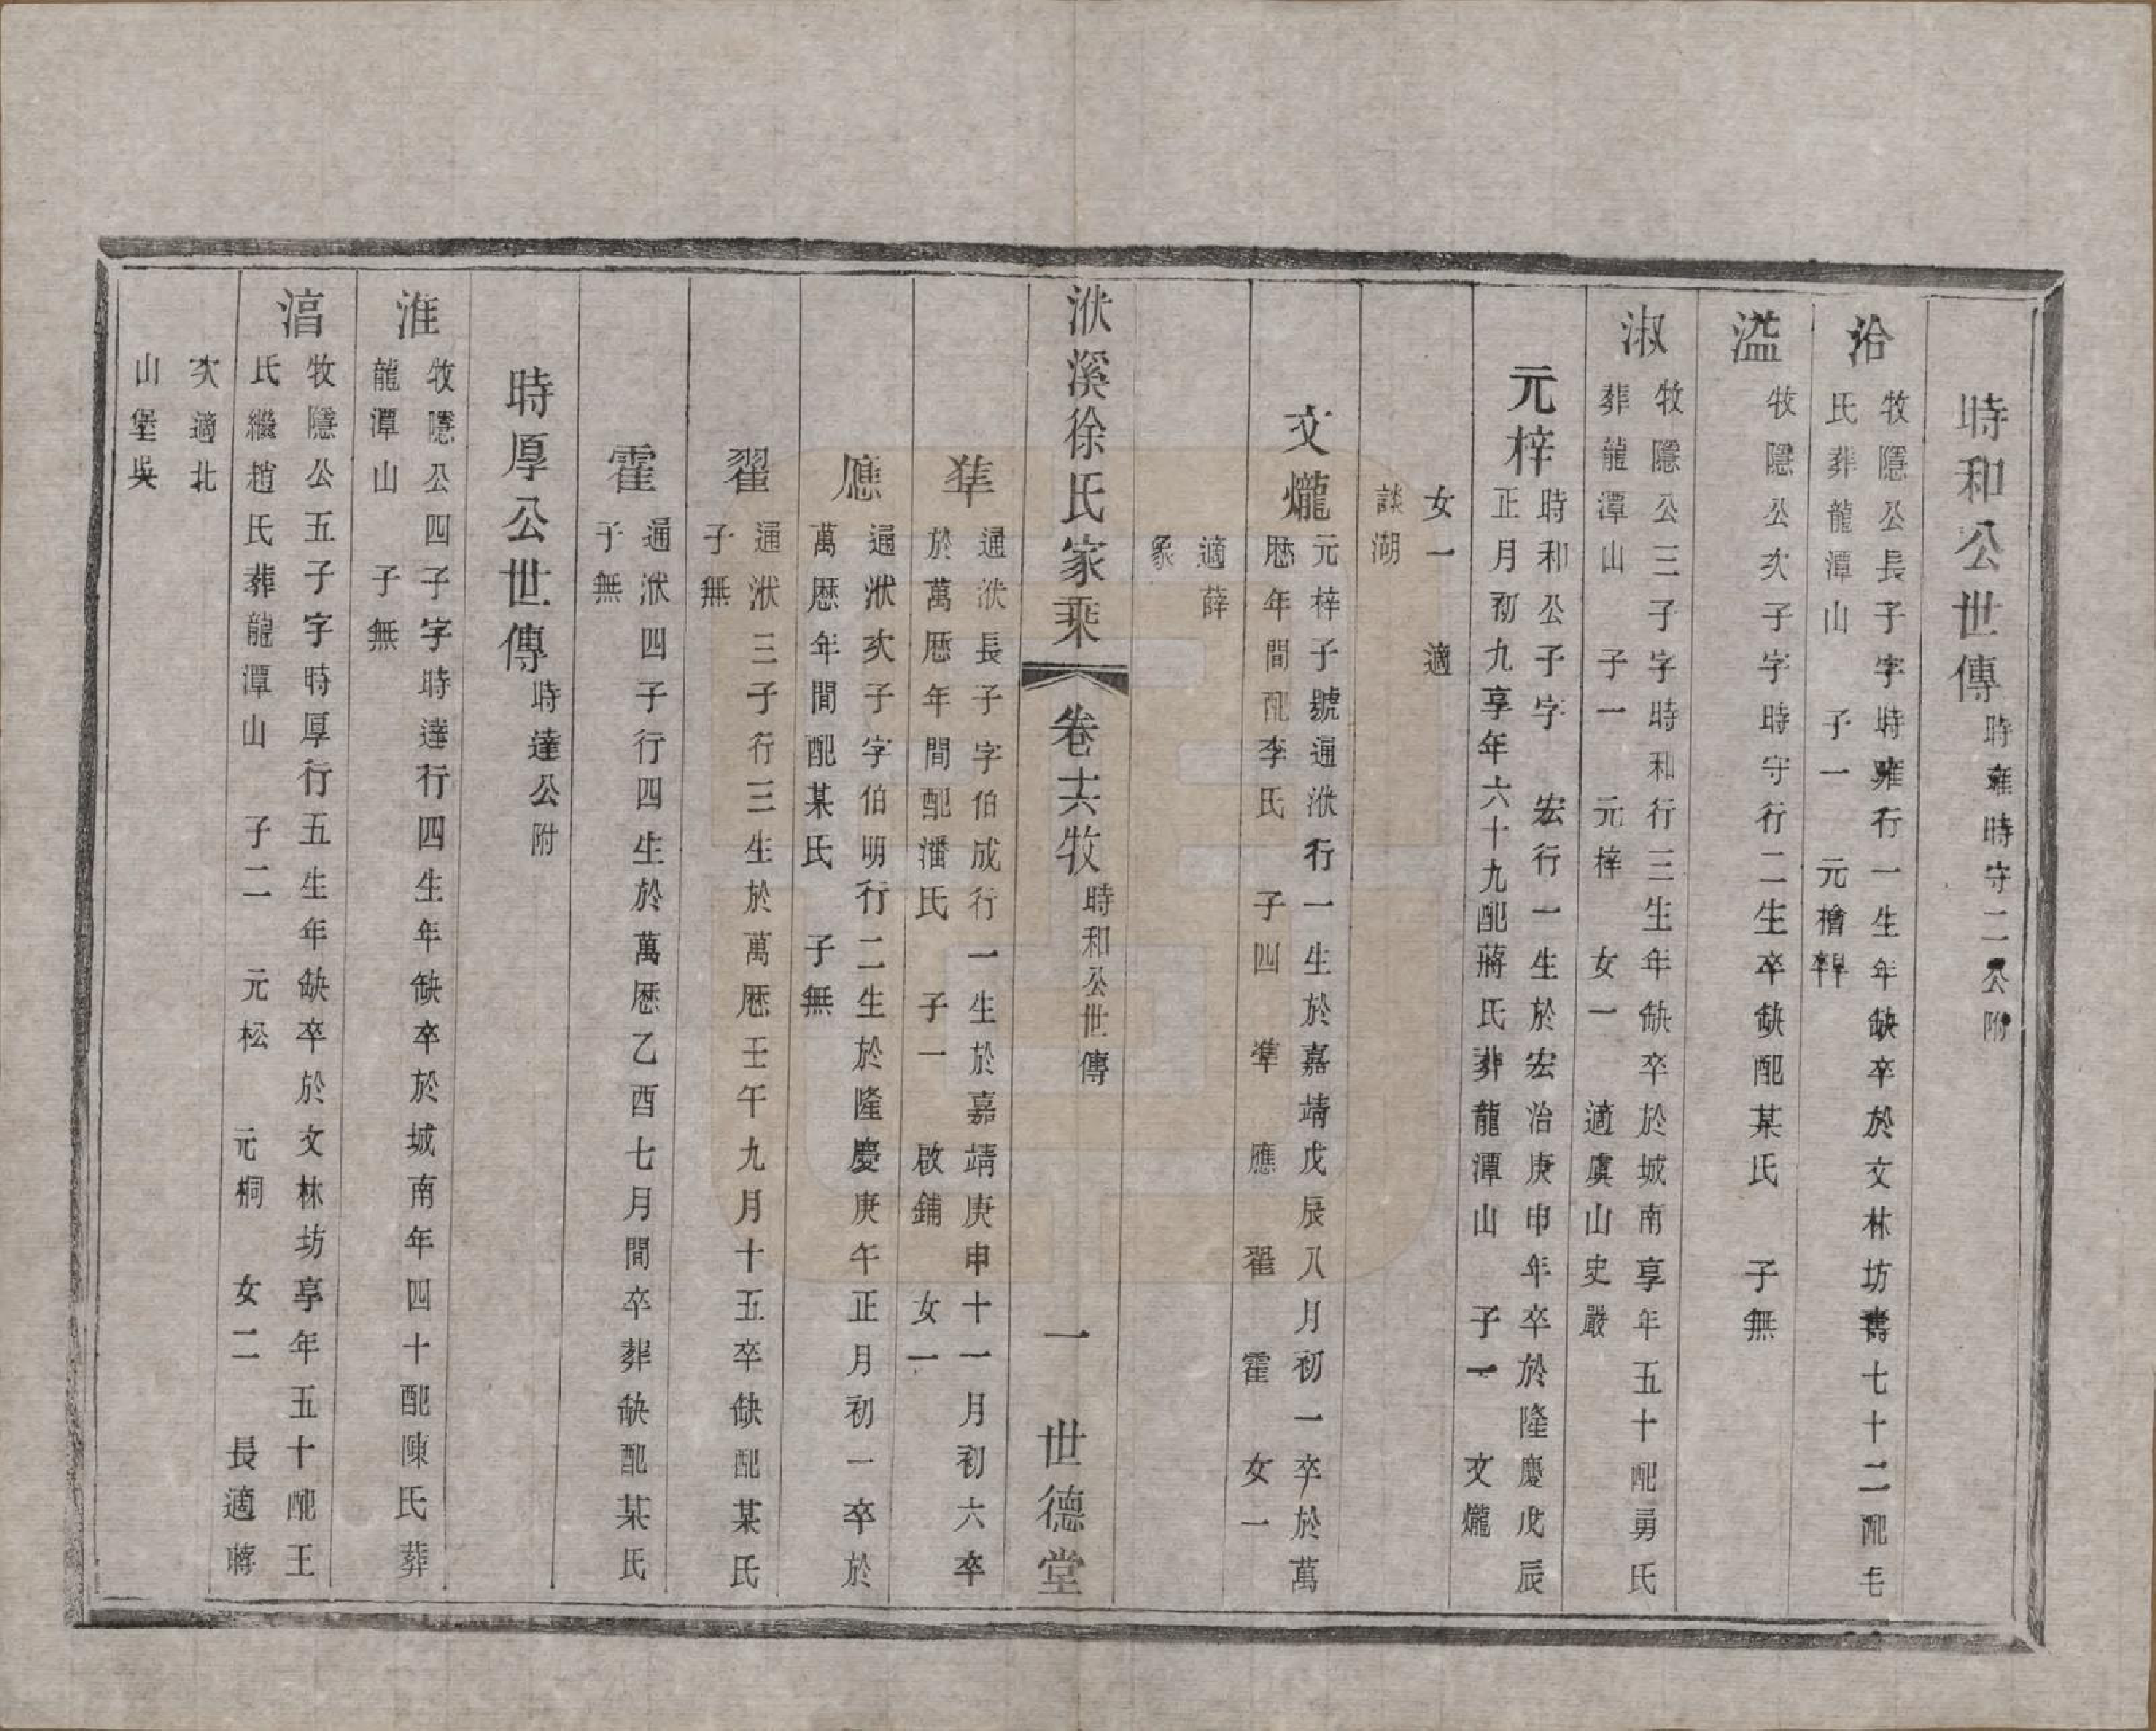 時和公世傳 時雍時守二公附
洽 牧隱公長子字時雍行一生年缺卒於文林坊壽七十二配毛
氏葬龍潭山 子一 元檜
溢 牧隱公次子字時守行二生卒缺配某氏 子無
淑 牧隱公三子字時和行三生年缺卒於城南享年五十配勇氏
葬龍潭山 子一 元梓 女一 適虞山史嚴
元梓 時和公子字 宏行一生於宏治庚申年卒於隆慶戊辰
正月初九享年六十九配蔣氏葬龍潭山 子一 文爖
女一 適
談湖
文爖 元梓子號通洑行一生於嘉靖戊辰八月初一卒於萬
厯年間配李氏 子四 準 應 翟 霍 女一
適薛
象
洑溪徐氏家乘 卷十六牧 時和公世傳 一 世德堂
準 通洑長子字伯成行一生於嘉靖庚申十一月初六卒
於萬厯年間配潘氏 子一 啟鋪 女一
應 通洑次子字伯明行二生於隆慶庚午正月初一卒於
萬厯年間配某氏 子無
翟 通洑三子行三生於萬厯壬午九月十五卒缺配某氏
子無
霍 通洑四子行四生於萬厯乙酉七月間卒葬缺配某氏
子無
時厚公世傳 時達公附
淮 牧隱公四子字時達行四生年缺卒於城南年四十配陳氏葬
龍潭山 子無
湻 牧隱公五子字時厚行五生年缺卒於文林坊享年五十配王
氏繼趙氏葬龍潭山 子二 元松 元桐 女二 長適蔣
次適北
山堡吳